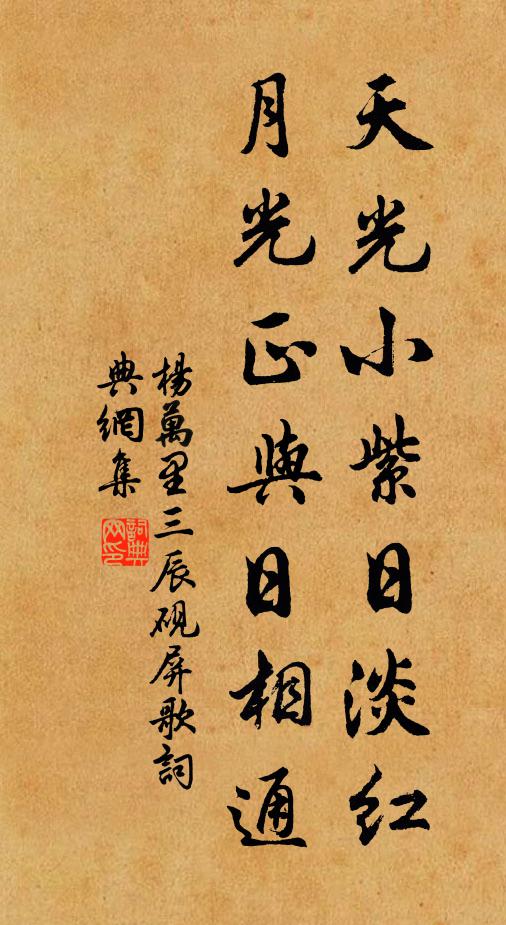 天光小紫日淡紅
月光正與日相通
楊萬里三辰硯屏歌詞
典網集
詞典網印